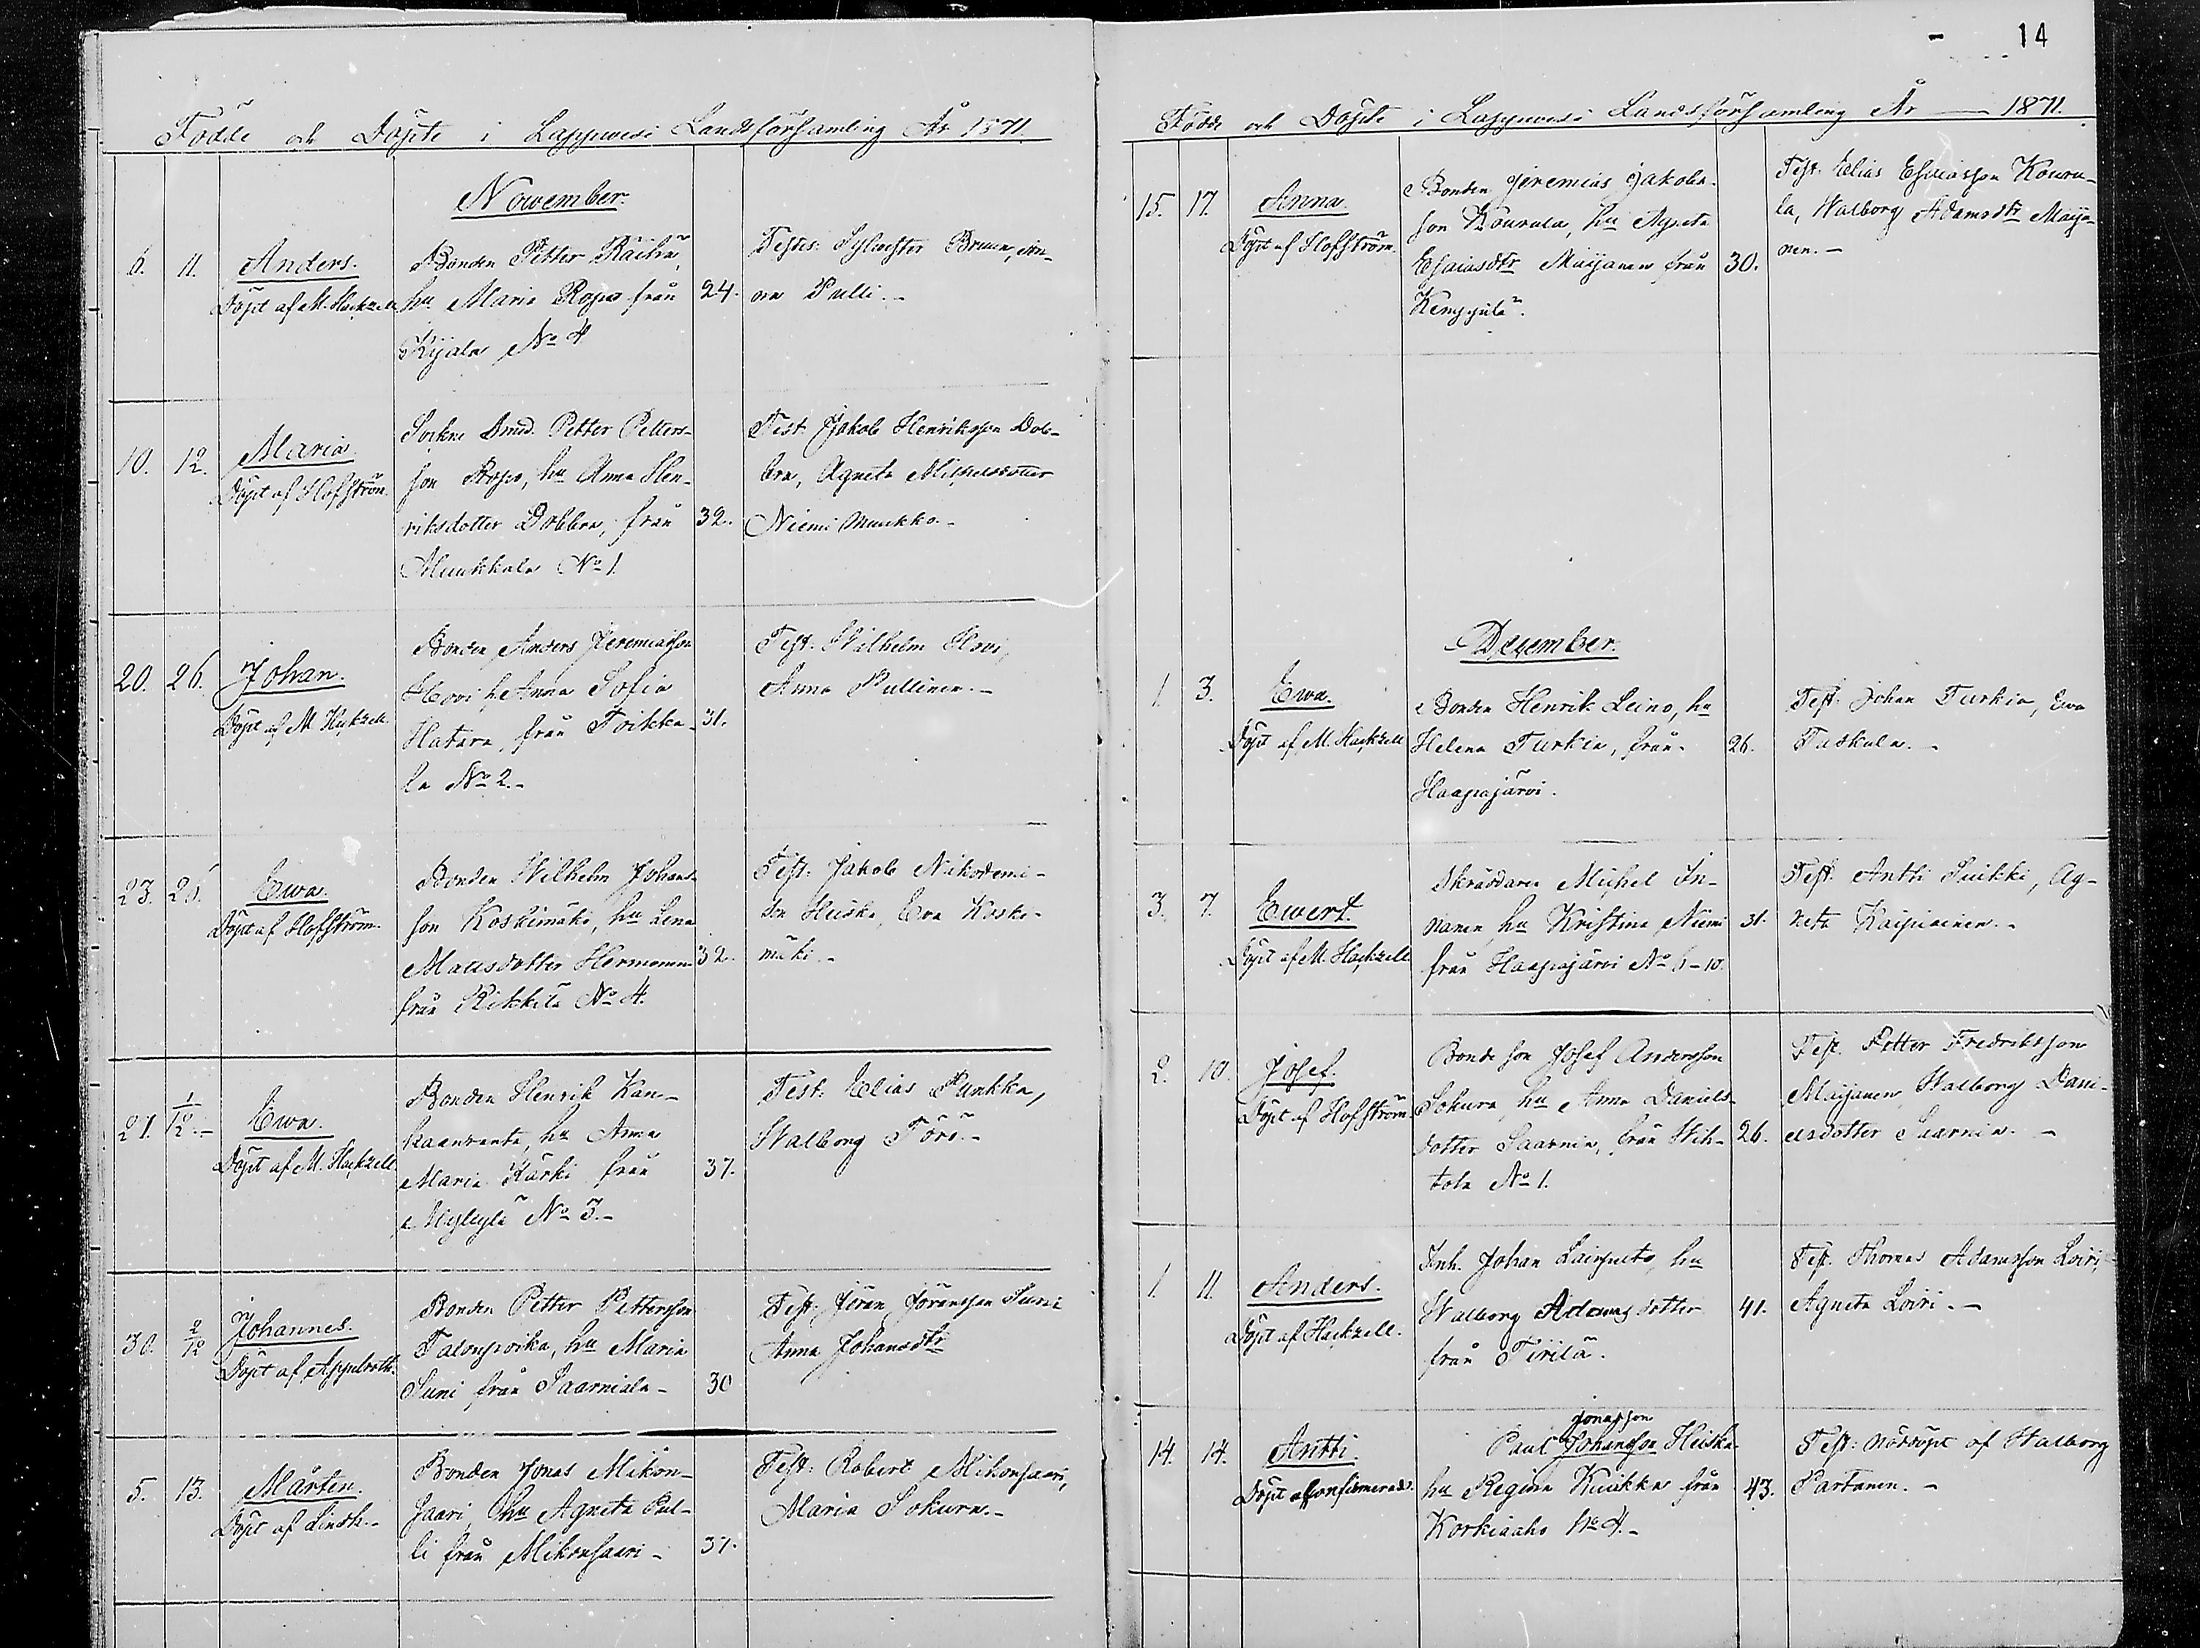 Födde och Döpte i Lappvesi Landsförsamling År 1871
November.
6. 11. Anders.
Döpt af M. Hackzell
Bonden Petter Räihä,
hu Maria Ropo från
Kijala No 4
24.
Testes: Sylvester Bruun, An-
na Pulli.-
10. 12. Maria
Döpt af Hofström.
Petter Petters-
son Ropo, hu Anna Hen-
riksdotter Dobbra, från
Muukkala No 1.
32.
Test. Jakob Henriksson Dob-
bra, Agneta Mikelsdotter
Niemi Muukko.-
20. 26. Johan.
Döpt af M Hackzell.
Bonden Anders Jeremiasson
Hovi h Anna Sofia
Hatara, från Toikka-
la No 2.-
31.
Test: Wilhelm Hovi,
Anna Pullinen.-
23. 26. Ewa.
Döpt af Hofström.
Bonden Wilhelm Johans-
son Koskimäki, hu Lena
Matsdotter
från Rikkilä No 4.
32.
Test: Jakob Nikodemi-
son Heiska, Eva Koski-
mäki.-
21. 1/12.- Ewa.
Döpt af M. Hackzell.
Bonden Henrik Kan-
kaanranta, hu Anna
Maria Kärki från
Myllylä No 3.-
37.
Test: Elias Punkka,
Walborg Törö.-
30. 2/12 Johannes.
Döpt af Appelroth.
Bonden Petter Pettersson
Talonpoika, hu Maria
Suni från Saarniala-
30
Test: Jöran Jöransson Suni
Anna Johansdtr
5. 13. Mårten.
Döpt af Lindh.-
Bonden Jonas Mikon-
saari hu Agneta Pul-
li från Mikonsaari-
37.
Test: Robert Mikonsaari,
Maria Sokura.-
14
Födde och Döpte i Lappvesi Landsförsamling År — 1871.
15. 17. Anna.
Döpt af Hofström.
Bonden Jeremias Jakobs-
son Kourula, hu Agneta
Esaiasdtr Maijanen från
Kemppilä.
30.
Test. Elias Esaiasson Kouru-
la, Walborg Adamsdtr Maija-
nen.-
December.
1. 3. Ewa.
Döpt af M. Hackzell
Bonden Henrik Leino, hu
Helena Turkia, från
Haapajärvi.
26.
Test: Johan Turkia, Ewa
Taskula.-
3. 7. Ewert.
Döpt af M. Hackzell
Skräddaren Michel In-
nanen, hu Kristina Niemi
från Haapajärvi No 6-10.
31.
Test. Antti Suikki, Ag-
neta Kaipiainen.-
2. 10. Josef.
Döpt af Hofström
Bonde son Josef Andersson
Sokura, hu Anna Daniels-
dotter Saarnia, från Hih-
tola No 1.
26.
Test. Petter Fredriksson
Maijanen, Walborg Dani-
elsdotter Saarnia.-
1. 11. Anders.
Döpt af Hackzell.
Inh. Johan Lairpelto, hu
Walborg Adamsdotter
från Tirilä.
41.
Test. Thomas Adamsson Loiri,
Agneta Loiri.-
14. 14. Antti.
Jonasson
Paul Johansson Heiska
hu Regina Kuikka från
Korkiaaho No 4.-
43.
Test: nöddöpt af Walborg
Partanen.-